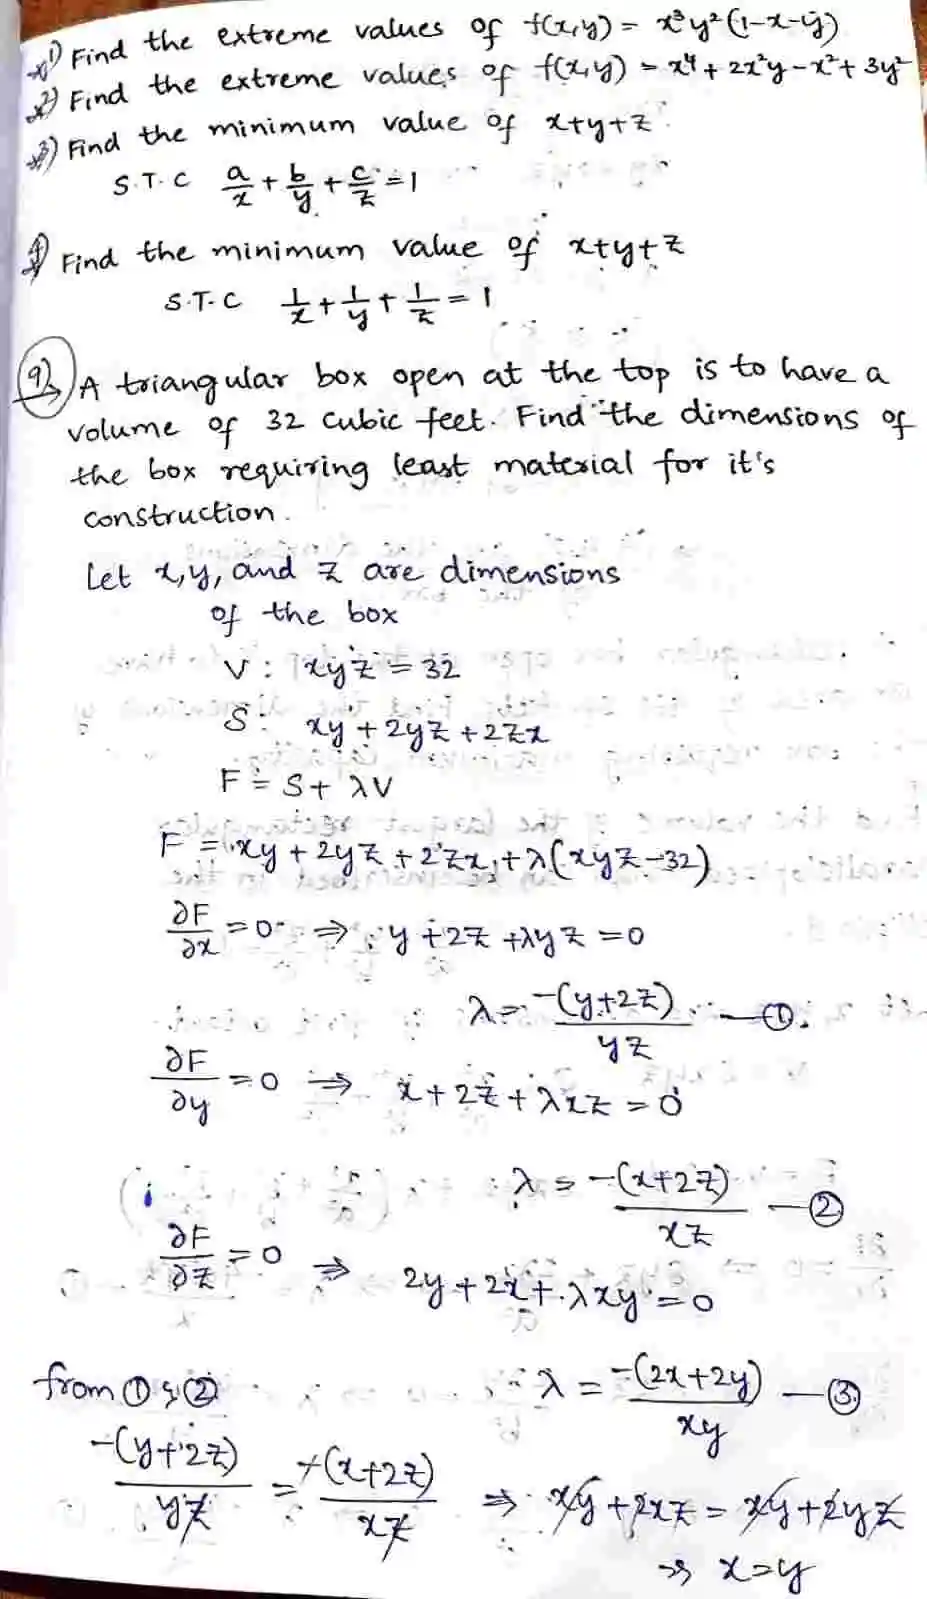 *1) Find the extreme values of f(x,y) = x³y²(1-x-y)
*2) Find the extreme values of f(x,y) = x⁴ + 2x²y - x² + 3y²
*3) Find the minimum value of x+y+z
S.T.C a/x + b/y + c/z = 1
4) Find the minimum value of x+y+z
S.T.C 1/x + 1/y + 1/z = 1
9) A triangular box open at the top is to have a
volume of 32 cubic feet. Find the dimensions of
the box requiring least material for it's
construction.
Let x,y, and z are dimensions
of the box
V : xyz = 32
S : xy + 2yz + 2zx
F = S + λV
F = xy + 2yz + 2zx + λ(xyz-32)
∂F/∂x = 0 ⇒ y + 2z + λyz = 0
λ = -(y+2z)/yz — ①
∂F/∂y = 0 ⇒ x + 2z + λxz = 0
λ = -(x+2z)/xz — ②
∂F/∂z = 0 ⇒ 2y + 2x + λxy = 0
from ① & ② λ = -(2x+2y)/xy — ③
-(y+2z)/yz = -(x+2z)/xz ⇒ xy + 2xz = xy + 2yz
⇒ x = y